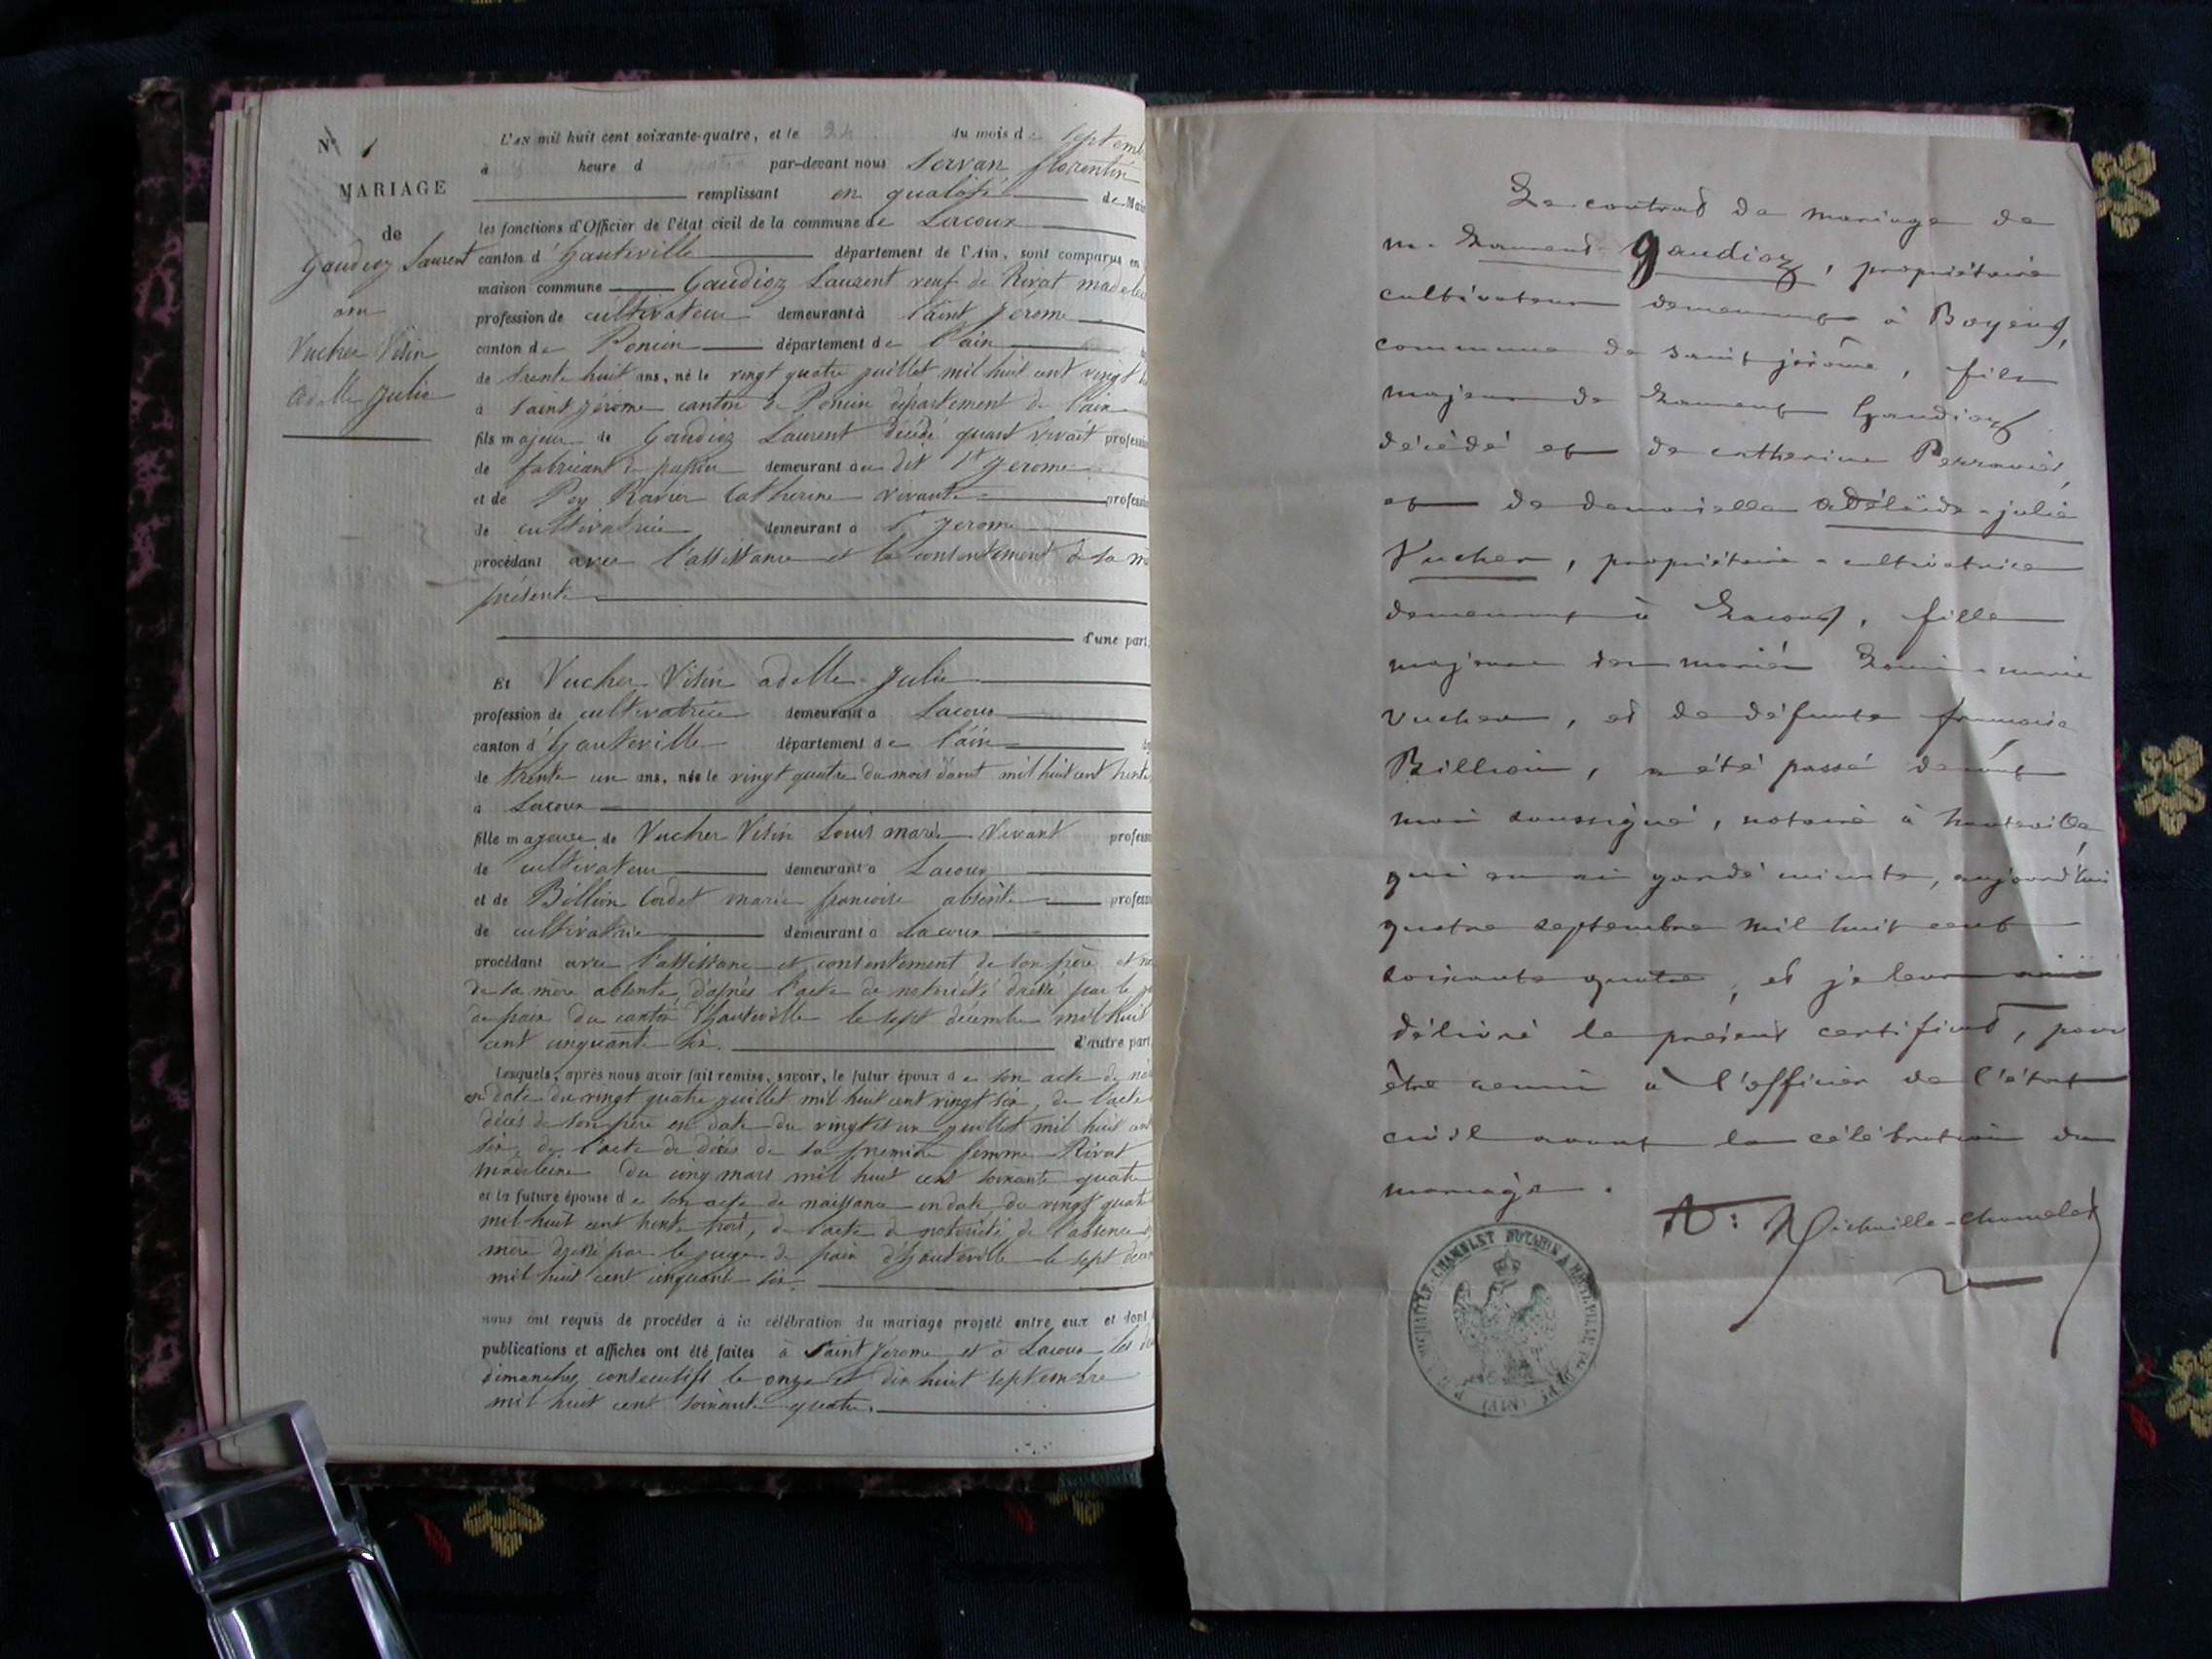 N° 1
MARIAGE
de
Gaudioz Laurent
avec
Vucher Visin
adelle Julie
L'AN mil huit cent soixante-quatre, et le 24 du mois de septemb
à heure d par-devant nous Servan florentin
remplissant en qualité de Mair
les fonctions d'Officier de l'état civil de la commune de Lacoux
canton d'hauteville département de l'Ain, sont comparus en
maison commune Gaudioz Laurent veuf de Rivat madelei
profession de cultivateur demeurant à Saint Jérome
canton de Poncin département de l'ain
de trente huit ans, né le vingt quatre juillet mil huit cent vingt
à Saint Jérome canton de Poncin département de l'ain
fils majeur de Gaudioz Laurent décédé quant vivait professi
de fabricant de demeurant au dit St Jerome
et de Pey Ravier Catherine vivante professi
de cultivatrice demeurant à St Jerome
procédant avec l'assistance et le consentement de sa m
présente
d'une part;
Et Vucher Visin adelle Julie
profession de cultivatrice demeurant à Lacoux
canton d'hauteville département de l'ain
de trente un ans, née le vingt quatre du mois d'aout mil huit cent trente
à Lacoux
fille majeure de Vucher Visin Louis marie vivant professi
de cultivateur demeurant à Lacoux
et de Billion Cadet marie francoise absente professi
de cultivatrice demeurant à Lacoux
procédant avec l'assistance et consentement de son père et
de sa mère absente, d'après l'acte de notoriété dressé par le
de paix du canton d'hauteville le sept décembre mil huit
cent cinquante six. d'autre part
Lesquels, après nous avoir fait remise, savoir, le futur époux de son acte de nai
en date du vingt quatre juillet mil huit cent vingt six, de l'acte
décès de son père en date du vingt et un juillet mil huit cent
six, de l'acte de décès de sa premiere femme Rivat
madeleine du cinq mars mil huit cent soixante quatre
et la future épouse de son acte de naissance en date du vingt quatre
mil huit cent trente trois, de l'acte de notoriété de l'absence
mère dressé par le juge de paix d'hauteville le sept décem
mil huit cent cinquante six.
nous ont requis de procéder à la célébration du mariage projeté entre eux et dont
publications et affiches ont été faites à Saint Jérome et à Lacoux les
dimanches consecutifs le onze et dix huit septembre
mil huit cent soixante quatre.
Le contrat de mariage de
m. Laurent Gaudioz, propriétaire
cultivateur demeurant à Boyeux,
commune de saint jérôme, fils
majeur de Laurent Gaudioz
décédé et de catherine Perravier,
et de demoiselle adélaïde-julie
Vucher, propriétaire-cultivatrice
demeurant à Lacoux, fille
majeure des mariés Louis-marie
Vucher, et de défunte françoise
Billion, a été passé devant
moi soussigné, notaire à hauteville,
qui en ai gardé minute, aujourd'hui
quatre septembre mil huit cent
soixante quatre, et je leur ai
délivré le présent certificat, pour
être remis à l'officier de l'état
civil avant la célébration du
mariage.
N: Michaille-Chamelet
MICHAILLE-CHAMELET NOTAIRE A HAUTEVILLE
(AIN)